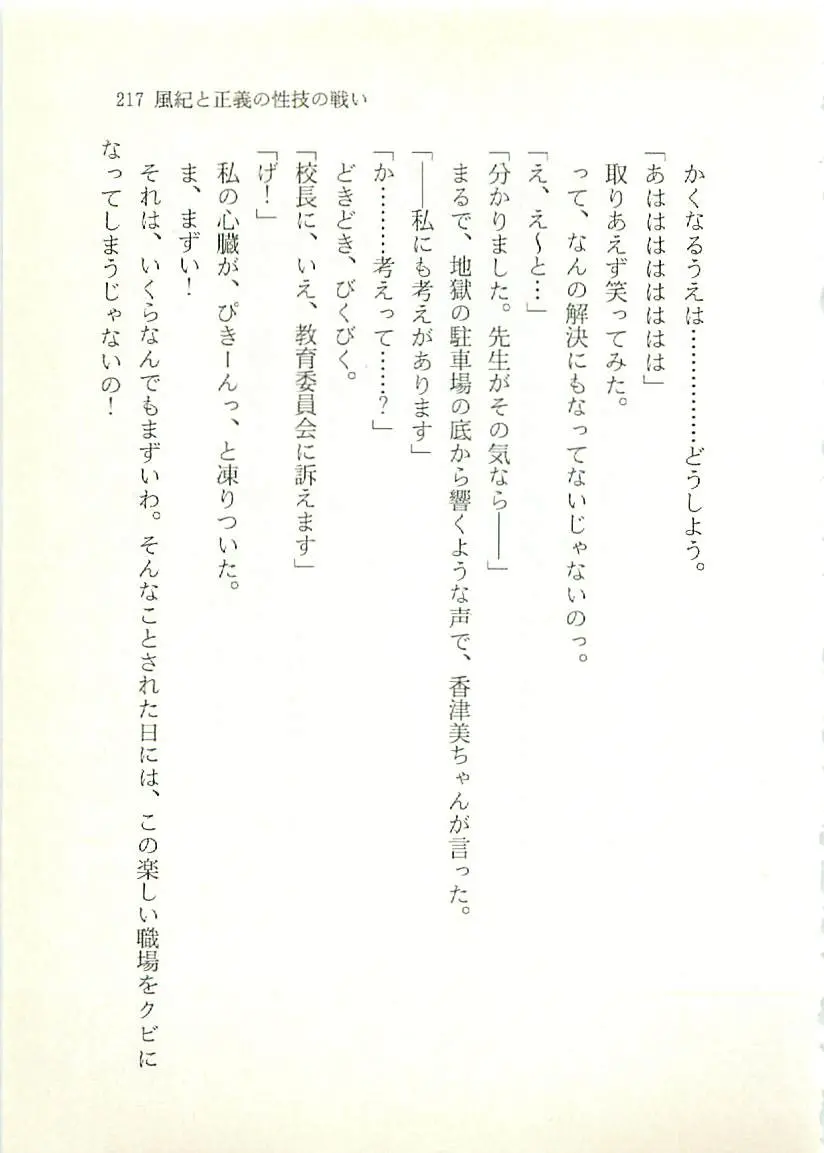 217 風紀と正義の性技の戦い
かくなるうえは………………どうしよう。
「あはははははははは」
取りあえず笑ってみた。
って、なんの解決にもなってないじゃないのっ。
「え、え～と…」
「分かりました。先生がその気なら――」
まるで、地獄の駐車場の底から響くような声で、香津美ちゃんが言った。
「――私にも考えがあります」
「か………考えって……？」
どきどき、びくびく。
「校長に、いえ、教育委員会に訴えます」
「げ！」
私の心臓が、ぴきーんっ、と凍りついた。
ま、まずい！
それは、いくらなんでもまずいわ。そんなことされた日には、この楽しい職場をクビに
なってしまうじゃないの！